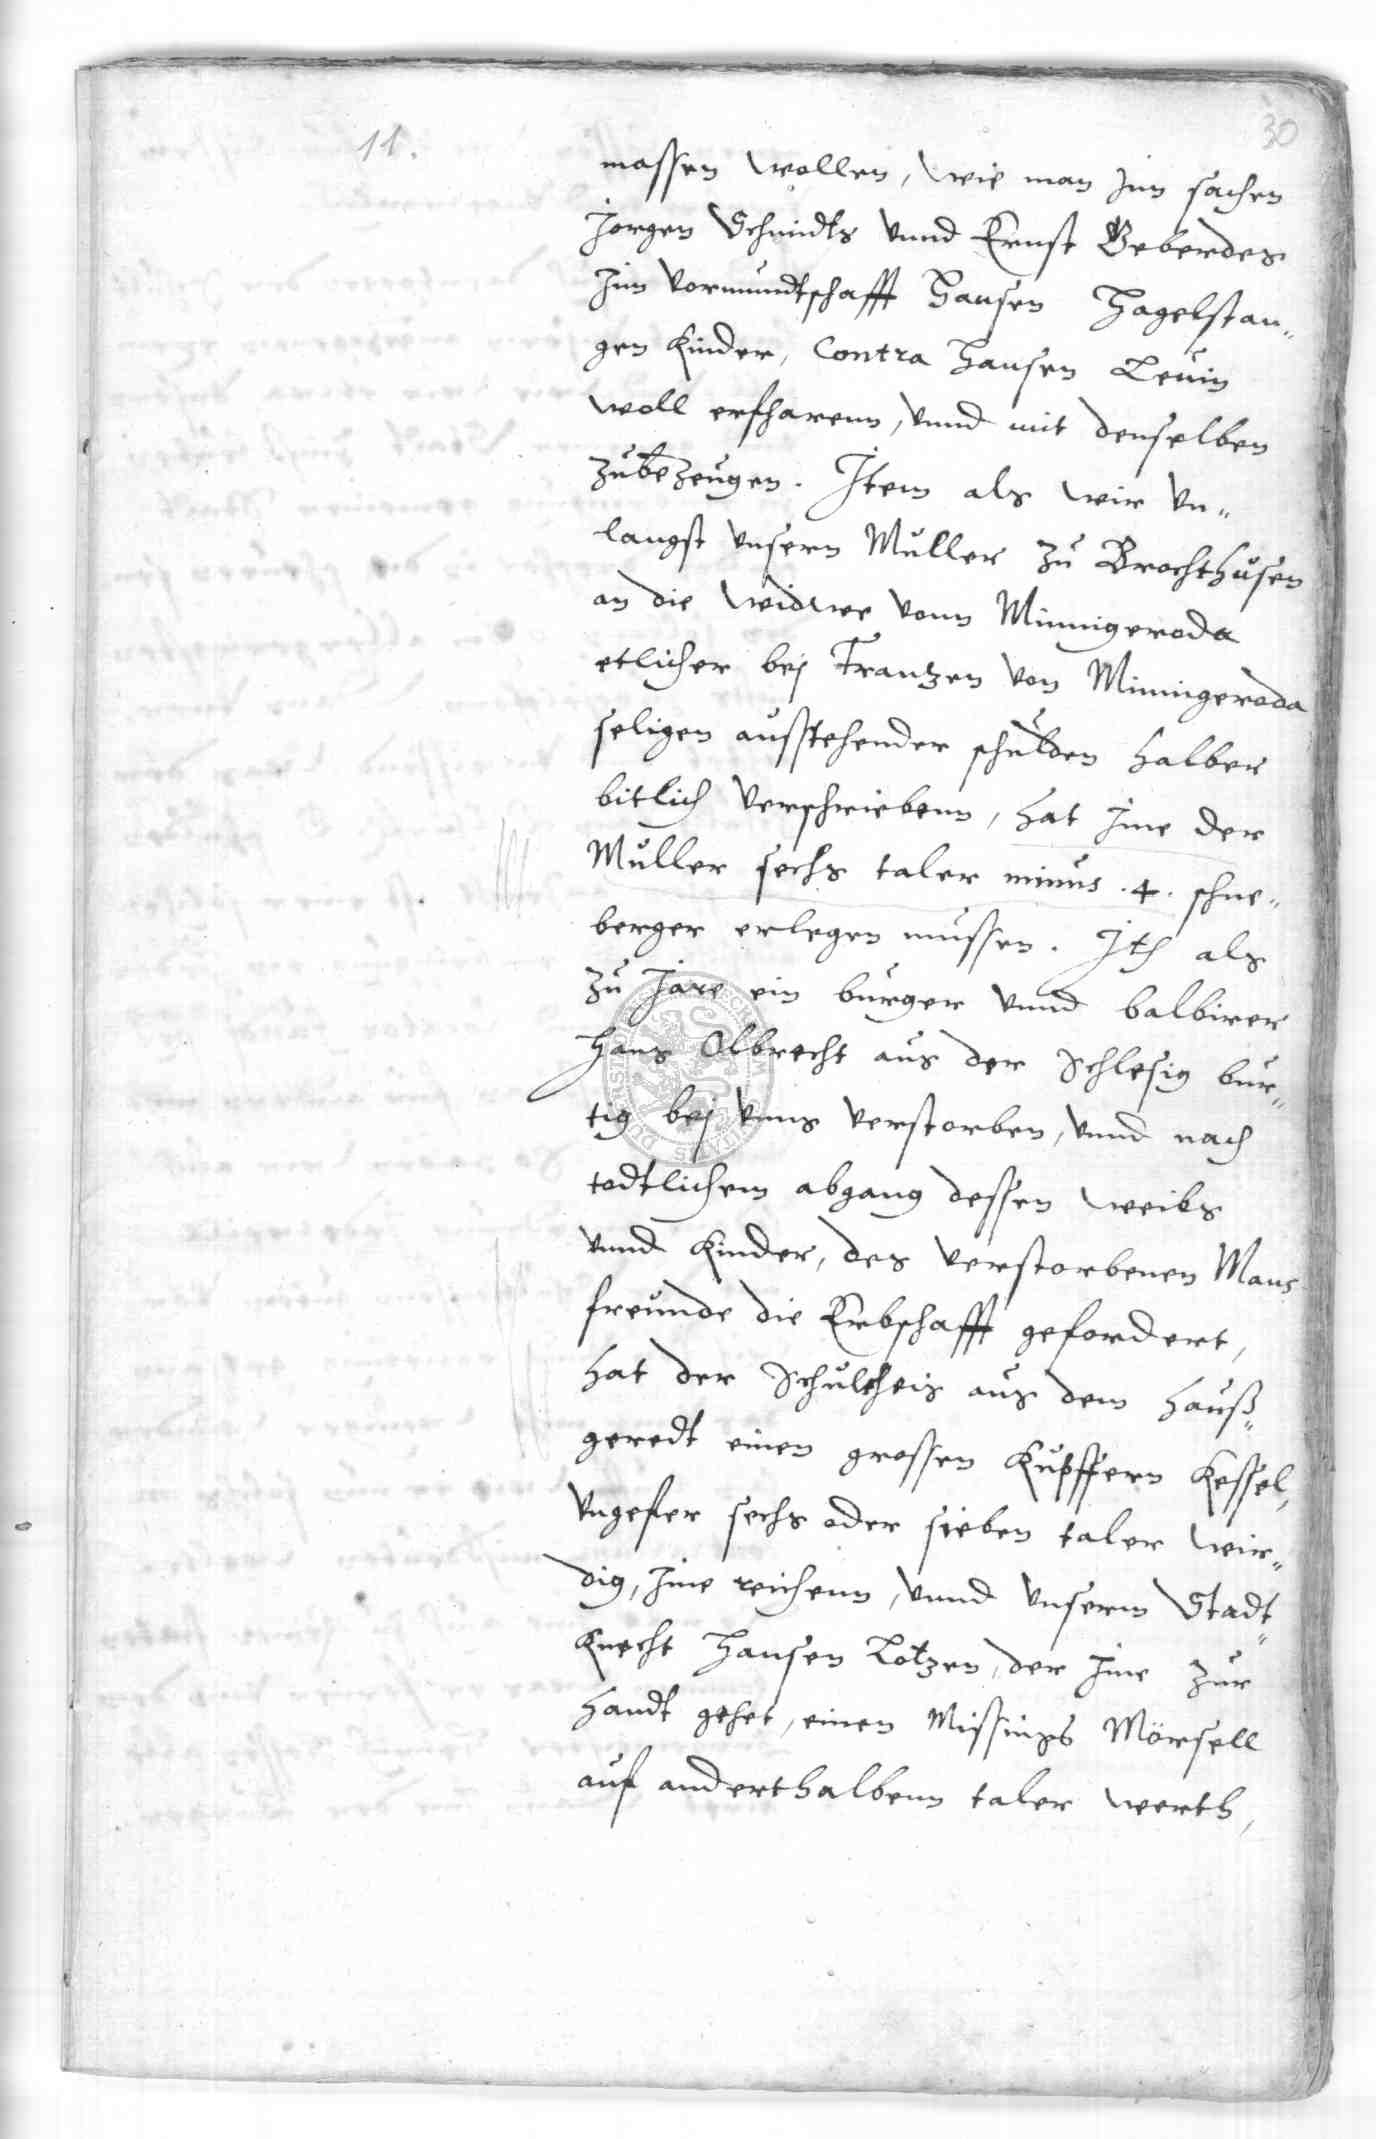 11.
30
massen wollen, wie man jnn sachen
Jorgen Schmidts vnnd Ernst Geberdes
Jnn vormundtschafft Hansen Hagelstan„
gen Kinder, Contra Hansen Leuin
woll erfharenn, vnnd mit denselben
zubezeugen. Jtem als wir vn„
langst vnsern Muller zu Brochthusen
an die widwe vonn Minnigeroda
etlicher bej Frantzen von Minnigeroda
seligen ausstehender schulden halber
bitlich verschriebenn, hat jme der
Muller sechs taler minus .4. schne„
berger erlegen mussen. Jth als
zu Jare ein burger vnnd balbirer
Hans Olbrecht aus der Schlesig bur„
tig bej vnns verstorben, vnnd nach
todtlichem abgang dessen weibs
vnnd Kinder, des verstorbenen Mans
freunde die Erbschafft gefordert,
hat der Schultheis aus dem hauß„
geredt einen grossen Kupffern Kessel,
vngefer sechs oder sieben taler wir„
dig, jme reichenn, vnnd vnserm Stadt„
Knecht Hansen Lotzen, der jme zur
handt gehet, einen Missings Mörsell
auf anderthalbenn taler werth,